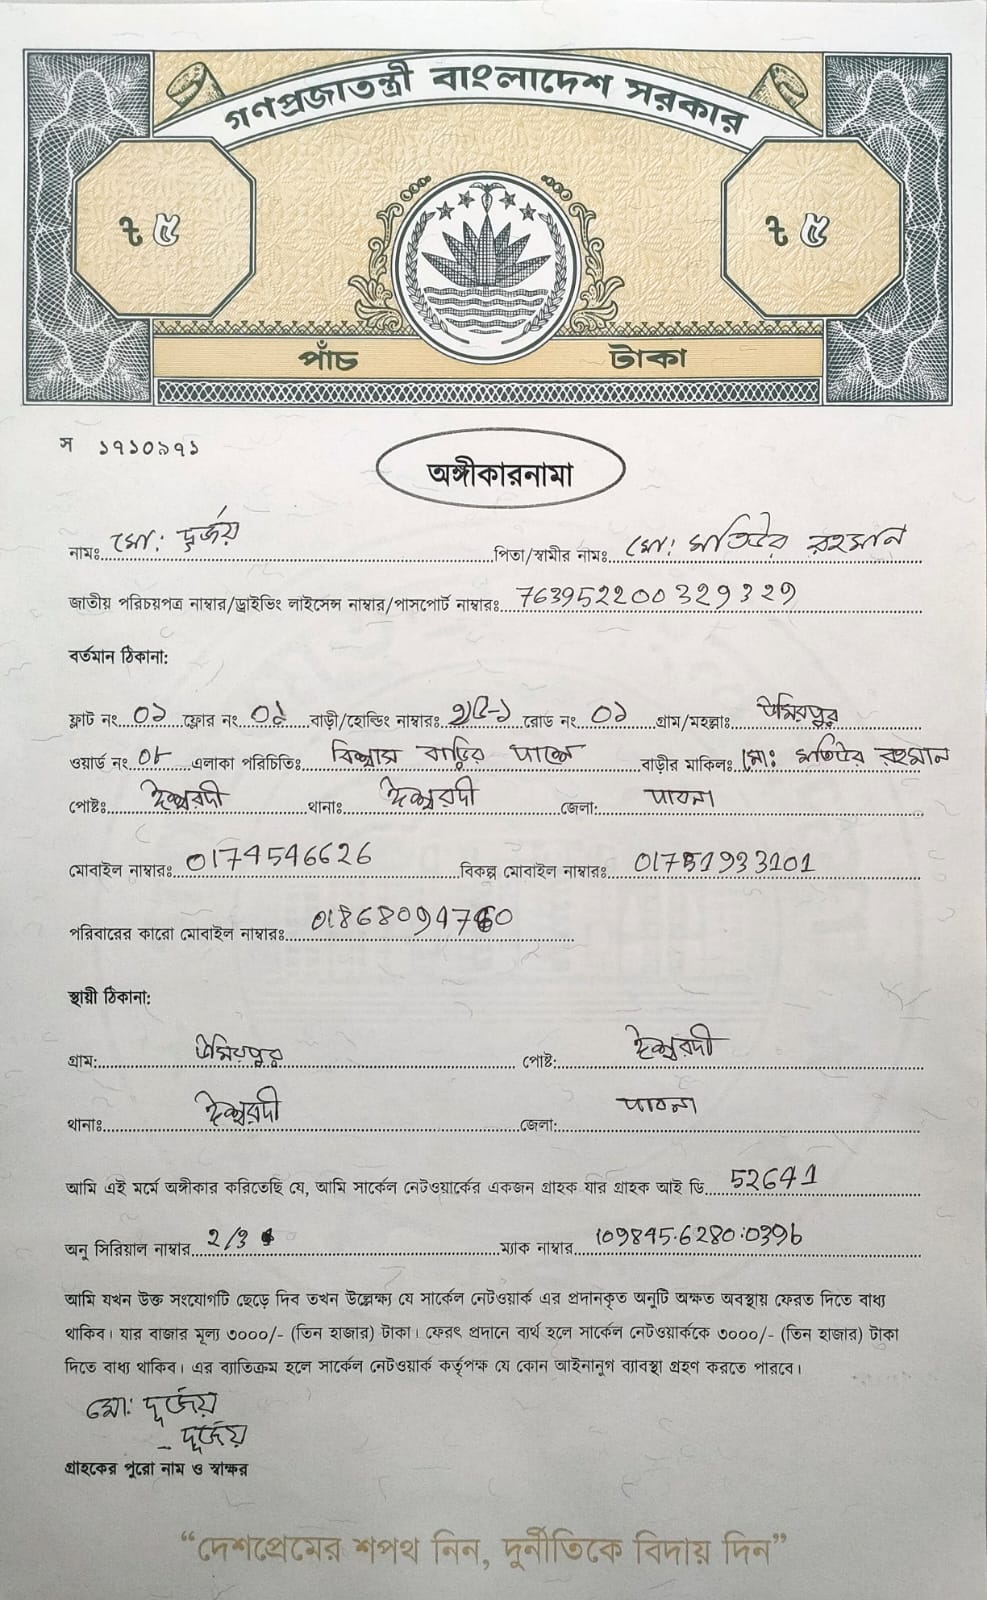 গণপ্রজাতন্ত্রী বাংলাদেশ সরকার
৳ ৫ ৳ ৫
পাঁচ টাকা
স ১৭১০৯৭১
অঙ্গীকারনামা
নামঃ মো: দুর্জয় পিতা/স্বামীর নামঃ মো: মতিউর রহমান
জাতীয় পরিচয়পত্র নাম্বার/ড্রাইভিং লাইসেন্স নাম্বার/পাসপোর্ট নাম্বারঃ 763952200329329
বর্তমান ঠিকানা:
ফ্লাট নং ০১ ফ্লোর নং ০১ বাড়ী/হোল্ডিং নাম্বারঃ রোড নং ০১ গ্রাম/মহল্লাঃ উমিরপুর
ওয়ার্ড নং ০৮ এলাকা পরিচিতিঃ বিশ্বাস বাড়ির পাশে বাড়ীর মাকিলঃ মো: মতিউর রহমান
পোষ্টঃ ঈশ্বরদী থানাঃ ঈশ্বরদী জেলা: পাবনা
মোবাইল নাম্বারঃ 0174546626 বিকল্প মোবাইল নাম্বারঃ 01751933101
পরিবারের কারো মোবাইল নাম্বারঃ
স্থায়ী ঠিকানা:
গ্রাম: উমিরপুর পোষ্ট: ঈশ্বরদী
থানাঃ ঈশ্বরদী জেলা: পাবনা
আমি এই মর্মে অঙ্গীকার করিতেছি যে, আমি সার্কেল নেটওয়ার্কের একজন গ্রাহক যার গ্রাহক আই ডি 52641
অনু সিরিয়াল নাম্বার 2/3 ম্যাক নাম্বার 109845.6280:0396
আমি যখন উক্ত সংযোগটি ছেড়ে দিব তখন উল্লেক্ষ্য যে সার্কেল নেটওয়ার্ক এর প্রদানকৃত অনুটি অক্ষত অবস্থায় ফেরত দিতে বাধ্য
থাকিব। যার বাজার মূল্য ৩০০০/- (তিন হাজার) টাকা। ফেরৎ প্রদানে ব্যর্থ হলে সার্কেল নেটওয়ার্ককে ৩০০০/- (তিন হাজার) টাকা
দিতে বাধ্য থাকিব। এর ব্যাতিক্রম হলে সার্কেল নেটওয়ার্ক কর্তৃপক্ষ যে কোন আইনানুগ ব্যাবস্থা গ্রহণ করতে পারবে।
মো: দুর্জয়
- দুর্জয়
গ্রাহকের পুরো নাম ও স্বাক্ষর
“দেশপ্রেমের শপথ নিন, দুর্নীতিকে বিদায় দিন”